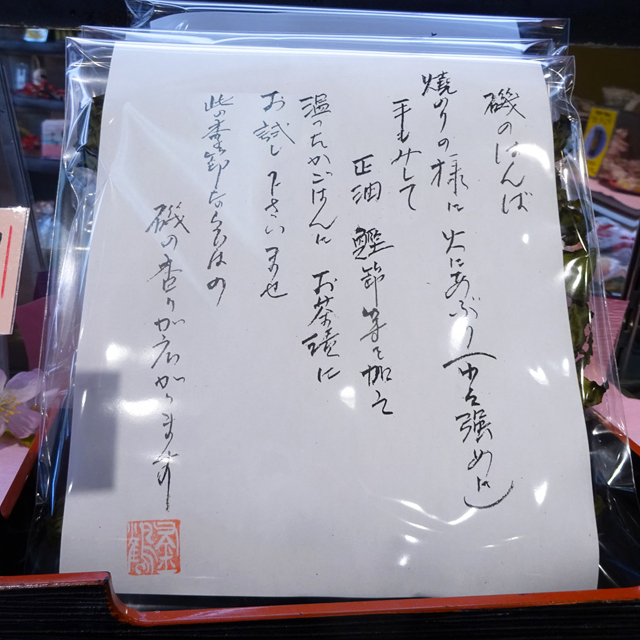 磯のはんば
焼のりの様に 火にあぶり(やや強めに)
手もみして
正油 鰹節等を加え
温ったかごはんに お茶漬に
お試し下さいませ
此の季節ならではの
磯の香りが広がります